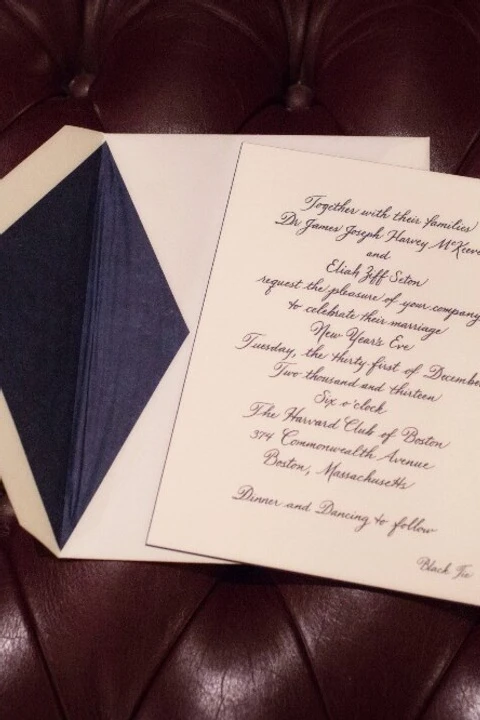 Together with their families
Dr James Joseph Harvey McKeeve
and
Eliah Ziff Seton
request the pleasure of your company
to celebrate their marriage
New Year's Eve
Tuesday, the thirty-first of December
Two thousand and thirteen
Six o'clock
The Harvard Club of Boston
374 Commonwealth Avenue
Boston, Massachusetts
Dinner and Dancing to follow
Black Tie